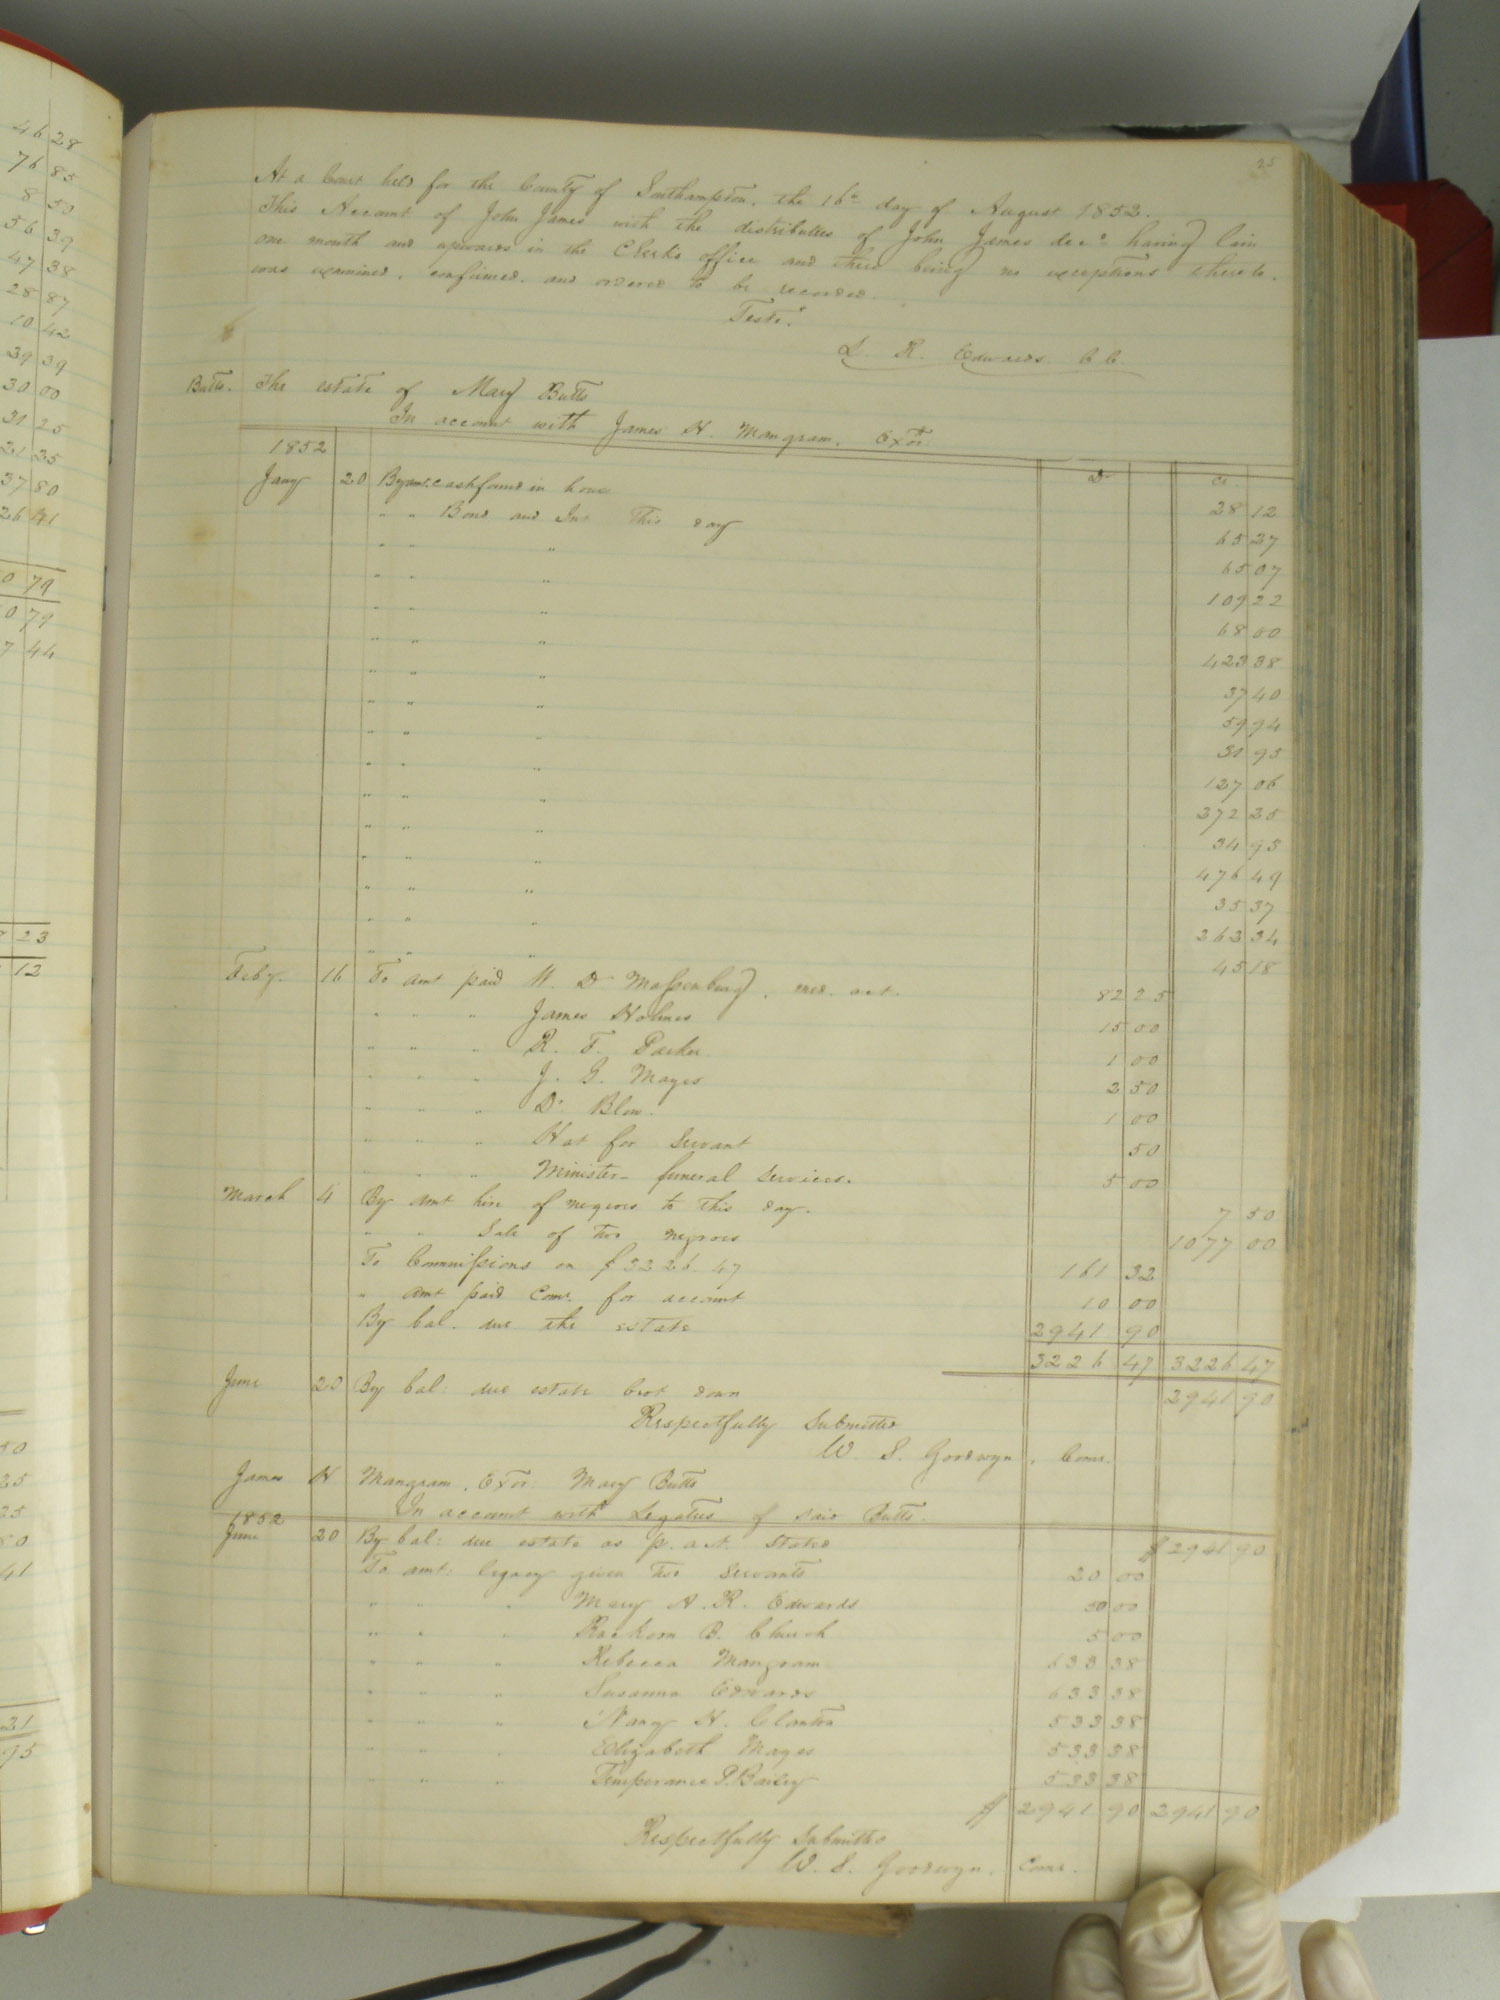 25
At a Court held for the County of Southampton, the 16th day of August 1852.
This Account of John James with the distributees of John James decd having lain
one month and upwards in the Clerk's office and there being no exceptions thereto.
was examined, confirmed, and ordered to be recorded.
Teste:
L. R. Edwards. C C.
Butts. The estate of Mary Butts
In account with James H. Mangram, Exor.
1852 Dr Cr.
Jany 20 By amt. cash found in house 28 12
" " Bond and Int This day 65 27
" " " 65 07
" " " 109 22
" " " 68 00
" " " 423 38
" " " 37 40
" " " 59 94
" " " 30 95
" " " 127 06
" " " 272 25
" " " 34 95
" " " 476 49
" " " 35 37
" " " 263 34
" " " 45 18
Feby. 16 To amt paid W. D Massenburg, med. act. 82 25
" " " James Holmes 15 00
" " " R. F. Parker. 1 00
" " " J. G. Mayes 2 50
" " " Dr. Blow. 1 00
" " " Hat for Servant 50
" " " Minister funeral services. 5 00
March 4 By amt hire of negroes to this day. 7 50
" " Sale of two negroes 1077 00
To Commissions on $3226.47 161 32
" amt paid Comr. for account 10 00
By bal. due the estate 2941 90
3226 47 3226 47
June 20 By bal: due estate brot down 2941 90
Respectfully Submitted
W. S. Goodwyn, Comr.
James H Mangram, Exor. Mary Butts
In account with Legatees of said Butts.
1852
June 20 By bal: due estate as p. act. Stated $2941 90
To amt: legacy given two Servants 20 00
" " " Mary A. R. Edwards 50 00
" " " Rackora B. Church 5 00
" " " Rebecca Mangram 633 38
" " " Susanna Edwards 633 38
" " " Nancy H. Clanton 533 38
" " " Elizabeth Mayes 533 38
" " " Temperance P. Bailey 533 38
$ 2941 90 2941 90
Respectfully Submitted
W. S. Goodwyn, Comr.